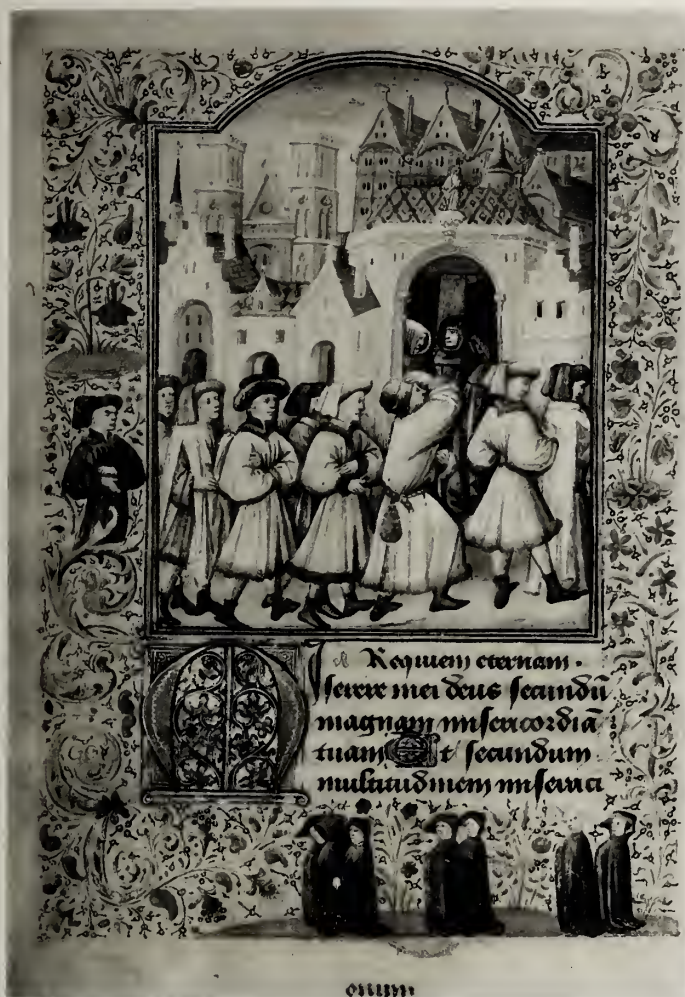 Requiem eternam ·
Miserere mei deus secundū
magnam misericordiā
tuam Et secundum
multitudinem miseraci
onum